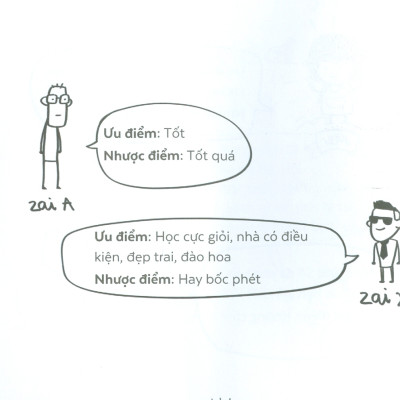 Ưu điểm: Tốt
Nhược điểm: Tốt quá
zai A
Ưu điểm: Học cực giỏi, nhà có điều
kiện, đẹp trai, đào hoa
Nhược điểm: Hay bốc phét
zai